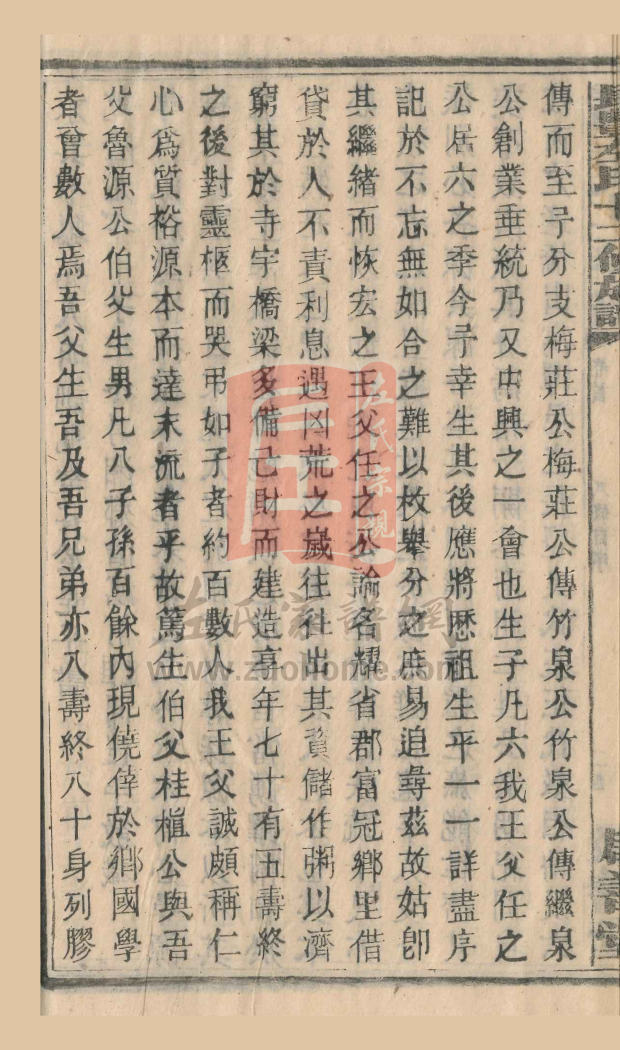 傳而至予分支梅莊公梅莊公傳竹泉公竹泉公傳繼泉
公創業垂統乃又中興之一會也生子凡六我王父任之
公居六之季今予幸生其後應將歷祖生平一一詳盡序
記於不忘無如合之難以枚舉分之庶易追尋茲故姑卽
其繼緒而恢宏之王父任之公論名耀省郡富冠鄉里借
貸於人不責利息遇凶荒之歲往往出其資儲作粥以濟
窮其於寺宇橋梁多備己財而建造享年七十有五壽終
之後對靈柩而哭弔如子者約百數人我王父誠頗稱仁
心爲質裕源本而達末流者乎故篤生伯父桂植公與吾
父魯源公伯父生男凡八子孫百餘內現僥倖於鄉國學
者曾數人焉吾父生吾及吾兄弟亦八壽終八十身列膠
左氏宗親
左氏族譜網
www.zuohome.com